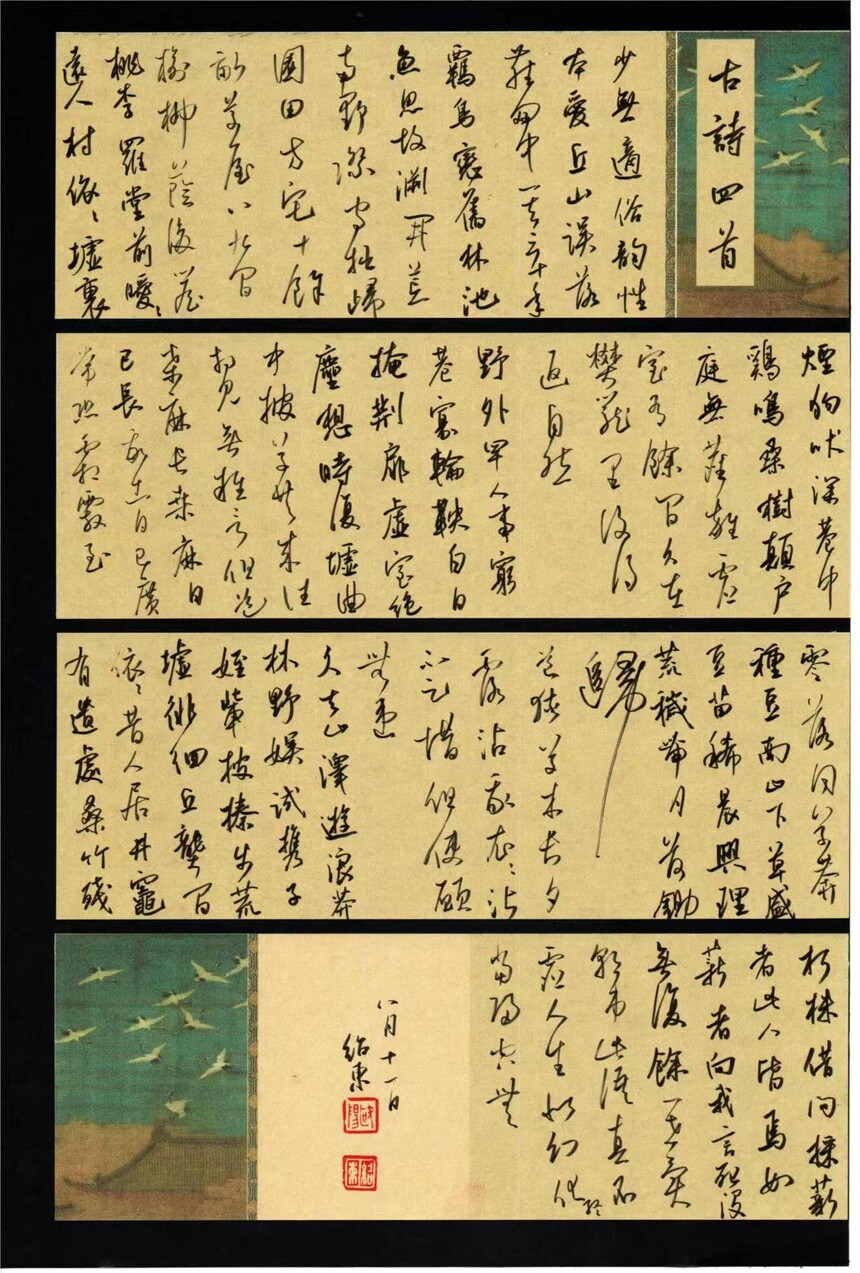 古詩四首
少無適俗韵性
本愛丘山誤落
塵網中一去三十年
羈鳥戀舊林池
魚思故淵開荒
南野際守拙歸
園田方宅十餘
畝草屋八九間
榆柳蔭後簷
桃李羅堂前曖〻
遠人村依〻墟裏
煙狗吠深巷中
鷄鳴桑樹顛户
庭無塵雜虛
室有餘閒久在
樊籠里復得
返自然
野外罕人事窮
巷寡輪鞅白日
掩荆扉虛室絕
塵想時復墟曲
中披草共來往
相見無雜言但道
桑麻長桑麻日
已長我土日已廣
常恐霜霰至
零落同草莽
種豆南山下草盛
豆苗稀晨興理
荒穢帶月荷鋤
歸
道狹草木長夕
露沾我衣〻沾
不足惜但使願
無違
久去山澤遊浪莽
林野娛試攜子
姪輩披榛步荒
墟徘徊丘壟間
依〻昔人居井竈
有遺處桑竹殘
朽株借問採薪
者此人皆焉如
薪者向我言死沒
無復餘一世異
朝市此語真不
虛人生似幻化終
當歸空無
八月十一日
紹東
歐陽
紹東